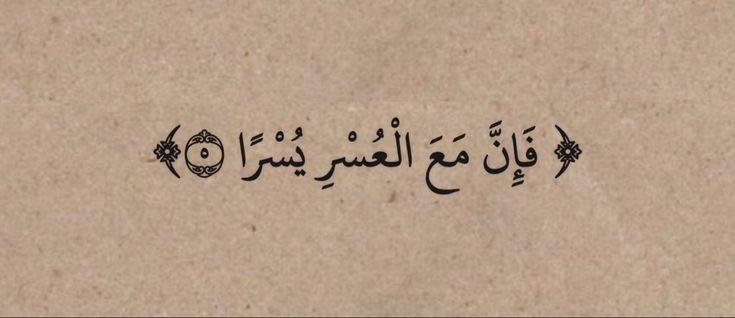 ﴿ فَإِنَّ مَعَ الْعُسْرِ يُسْرًا ۝٥ ﴾